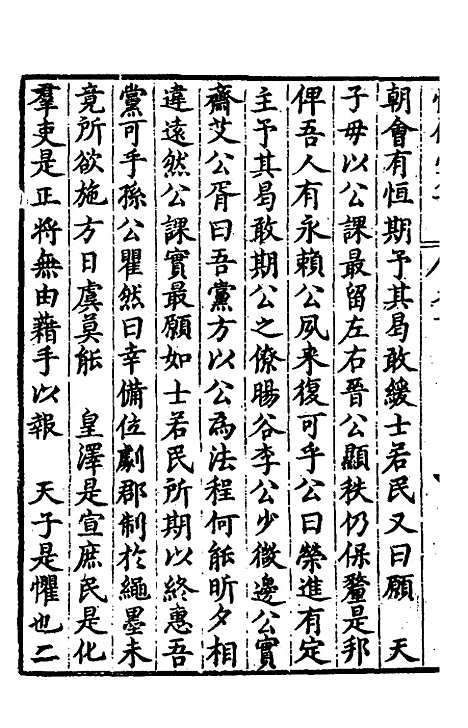 朝會有恒期予其曷敢緩士若民又曰願　天
子毋以公課最留左右晉公顯秩仍保釐是邦
俾吾人有永賴公夙来復可乎公曰榮進有定
主予其曷敢期公之僚暘谷李公少微邊公實
齋艾公胥曰吾黨方以公為法程何能昕夕相
違遠然公課實最願如士若民所期以終惠吾
黨可乎孫公瞿然曰幸備位劇郡制於繩墨未
竟所欲施方日虞莫能　皇澤是宣庶民是化
羣吏是正将無由藉手以報　天子是懼也二